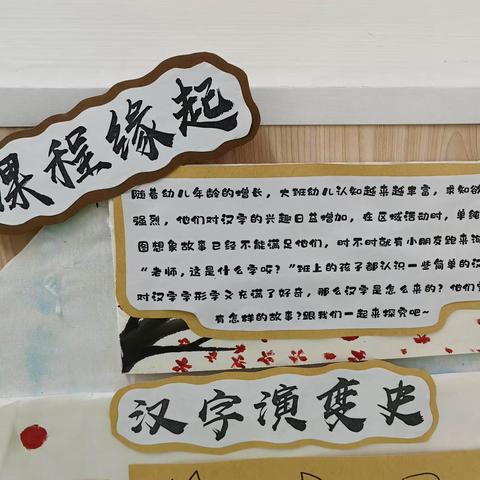 课程缘起
随着幼儿年龄的增长，大班幼儿认知越来越丰富，求知欲
强烈，他们对汉字的兴趣日益增加，在区域活动时，单纯
图想象故事已经不能满足他们，时不时就有小朋友跑来询
“老师，这是什么字呀？”班上的孩子都认识一些简单的汉
对汉字字形字义充满了好奇，那么汉字是怎么来的？他们
有怎样的故事？跟我们一起来探究吧~
汉字演变史